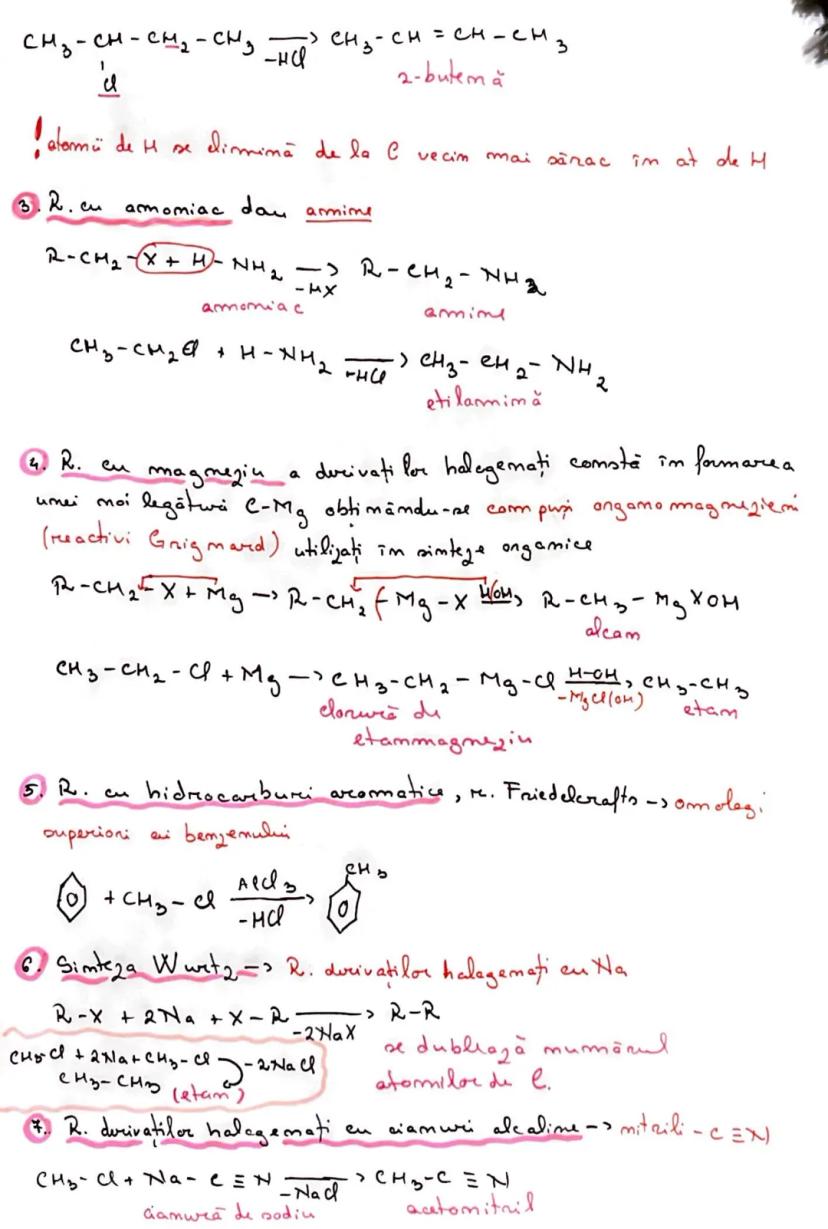 CH₃-CH-CH₂-CH₃ →-HCl CH₃-CH=CH-CH₃
Cl
2-butenă
! atomii de H se elimină de la C vecin mai sărac în at de H
3. R. cu amoniac dau amine
R-CH₂-X + H-NH₂ →-HX R-CH₂-NH₂
amoniac amine
CH₃-CH₂Cl + H-NH₂ →-HCl CH₃-CH₂-NH₂
etilamină
4. R. cu magneziu a derivaților halogenați constă în formarea
unei noi legături C-Mg obținându-se compuși organo magnezieni
(reactivi Grignard) utilizați în sinteze organice
R-CH₂-X + Mg → R-CH₂-Mg-X HOH→ R-CH₃-MgXOH
alcan
CH₃-CH₂-Cl + Mg → CH₃-CH₂-Mg-Cl H-OH→-MgCl(OH) CH₃-CH₃
clorură de etan
etanmagneziu
5. R. cu hidrocarburi aromatice, r. Friedelcrafts → omologi
superiori ai benzenului
CH₃
+ CH₃-Cl AlCl₃→-HCl
6. Sinteza Wurtz → R. derivaților halogenați cu Na
R-X + 2Na + X-R →-2NaX R-R
se dublează numărul
CH₃Cl + 2Na + CH₃-Cl -2NaCl
CH₃-CH₃ atomilor de C.
(etan)
7. R. derivaților halogenați cu cianuri alcaline → nitrili -C≡N
CH₃-Cl + Na-C≡N →-NaCl CH₃-C≡N
cianură de sodiu acetonitril